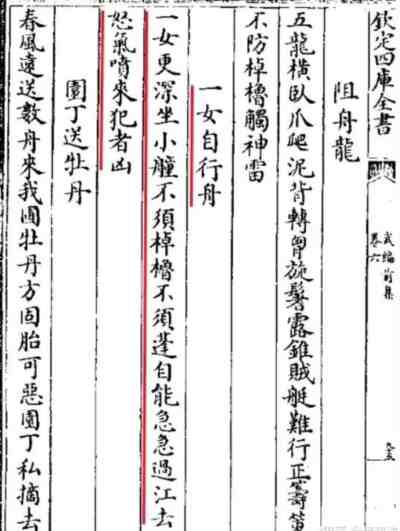 欽定四庫全書
武編前集
卷六
阻舟龍
五龍橫臥爪爬泥背轉胷旋鬐露錐賊艇難行正籌策
不防棹櫓觸神雷
一女自行舟
一女更深坐小艟不須棹櫓不須蓬自能急急過江去
怒氣噴來犯者凶
園丁送牡丹
春風遠送數舟來我園牡丹方固胎可惡園丁私摘去